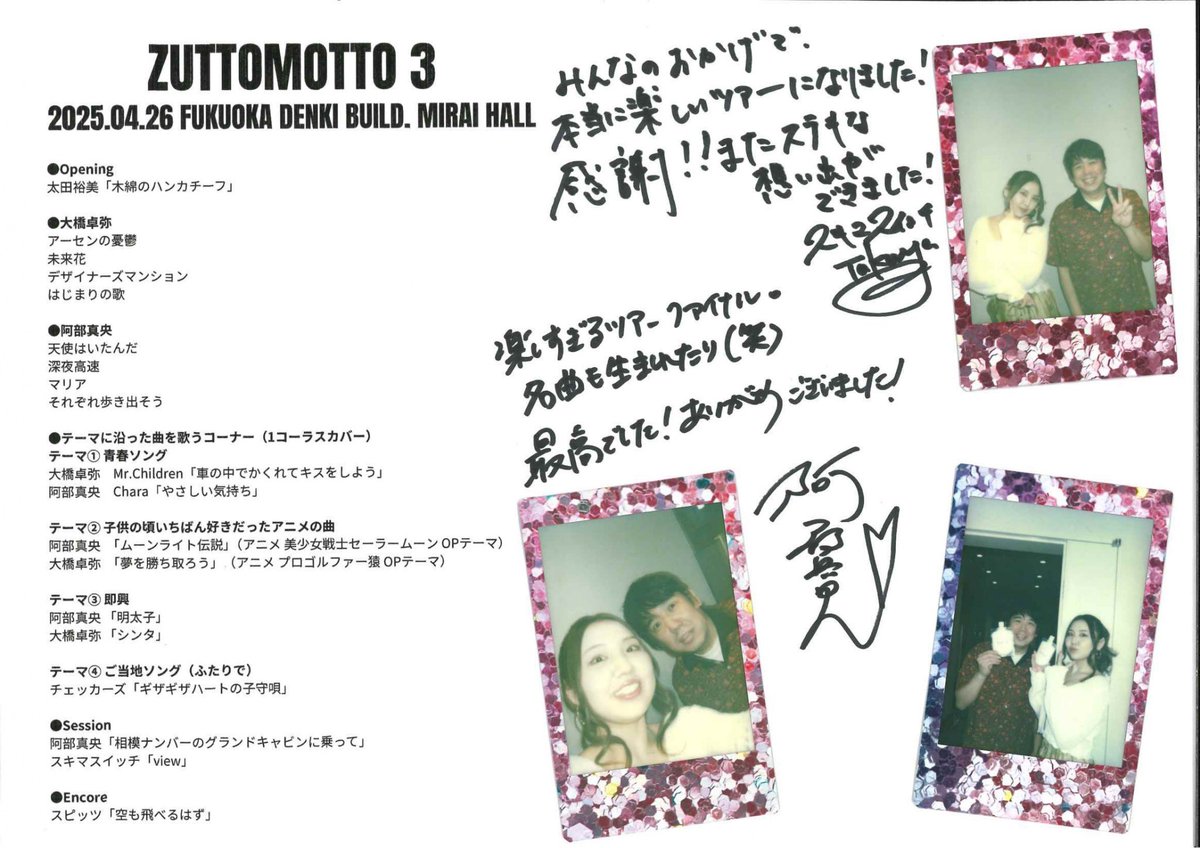 ZUTTOMOTTO 3
2025.04.26 FUKUOKA DENKI BUILD. MIRAI HALL
●Opening
太田裕美「木綿のハンカチーフ」
●大橋卓弥
アーセンの憂鬱
未来花
デザイナーズマンション
はじまりの歌
●阿部真央
天使はいたんだ
深夜高速
マリア
それぞれ歩き出そう
●テーマに沿った曲を歌うコーナー（1コーラスカバー）
テーマ① 青春ソング
大橋卓弥　Mr.Children「車の中でかくれてキスをしよう」
阿部真央　Chara「やさしい気持ち」
テーマ② 子供の頃いちばん好きだったアニメの曲
阿部真央 「ムーンライト伝説」（アニメ 美少女戦士セーラームーン OPテーマ）
大橋卓弥 「夢を勝ち取ろう」（アニメ プロゴルファー猿 OPテーマ）
テーマ③ 即興
阿部真央 「明太子」
大橋卓弥 「シンタ」
テーマ④ ご当地ソング（ふたりで）
チェッカーズ「ギザギザハートの子守唄」
●Session
阿部真央「相模ナンバーのグランドキャビンに乗って」
スキマスイッチ「view」
●Encore
スピッツ「空も飛べるはず」
みんなのおかげで、
本当に楽しいツアーになりました！
感謝！！またステキな
想い出が
できました！
スキマスイッチ
Takuya
楽しすぎるツアーファイナル。
名曲も生まれたり（笑）
最高でした！ありがとうございました！
阿部真央